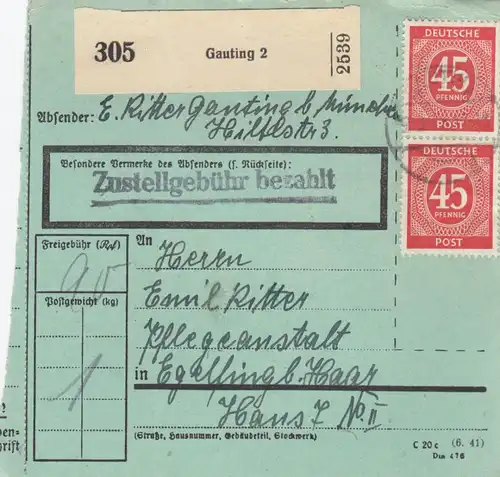 305
Gauting 2
2539
DEUTSCHE
45
PFENNIG
POST
DEUTSCHE
45
PFENNIG
POST
Absender: E. Ritter Gauting b. München
Hiltlstr 3.
Besondere Vermerke des Absenders (s. Rückseite):
Zustellgebühr bezahlt
Freigebühr (Rℳ)
90
Postgewicht (kg)
1
An
Herrn
Emil Ritter
Pflegeanstalt
in Egelfing b. Haar
Haus 7 No II
(Straße, Hausnummer, Gebäudeteil, Stockwerk)
C 20 c (6. 41)
Din 476